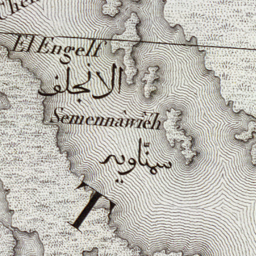 El Engelf
الانجلف
Semennàwïeh
سمنّاويه
T